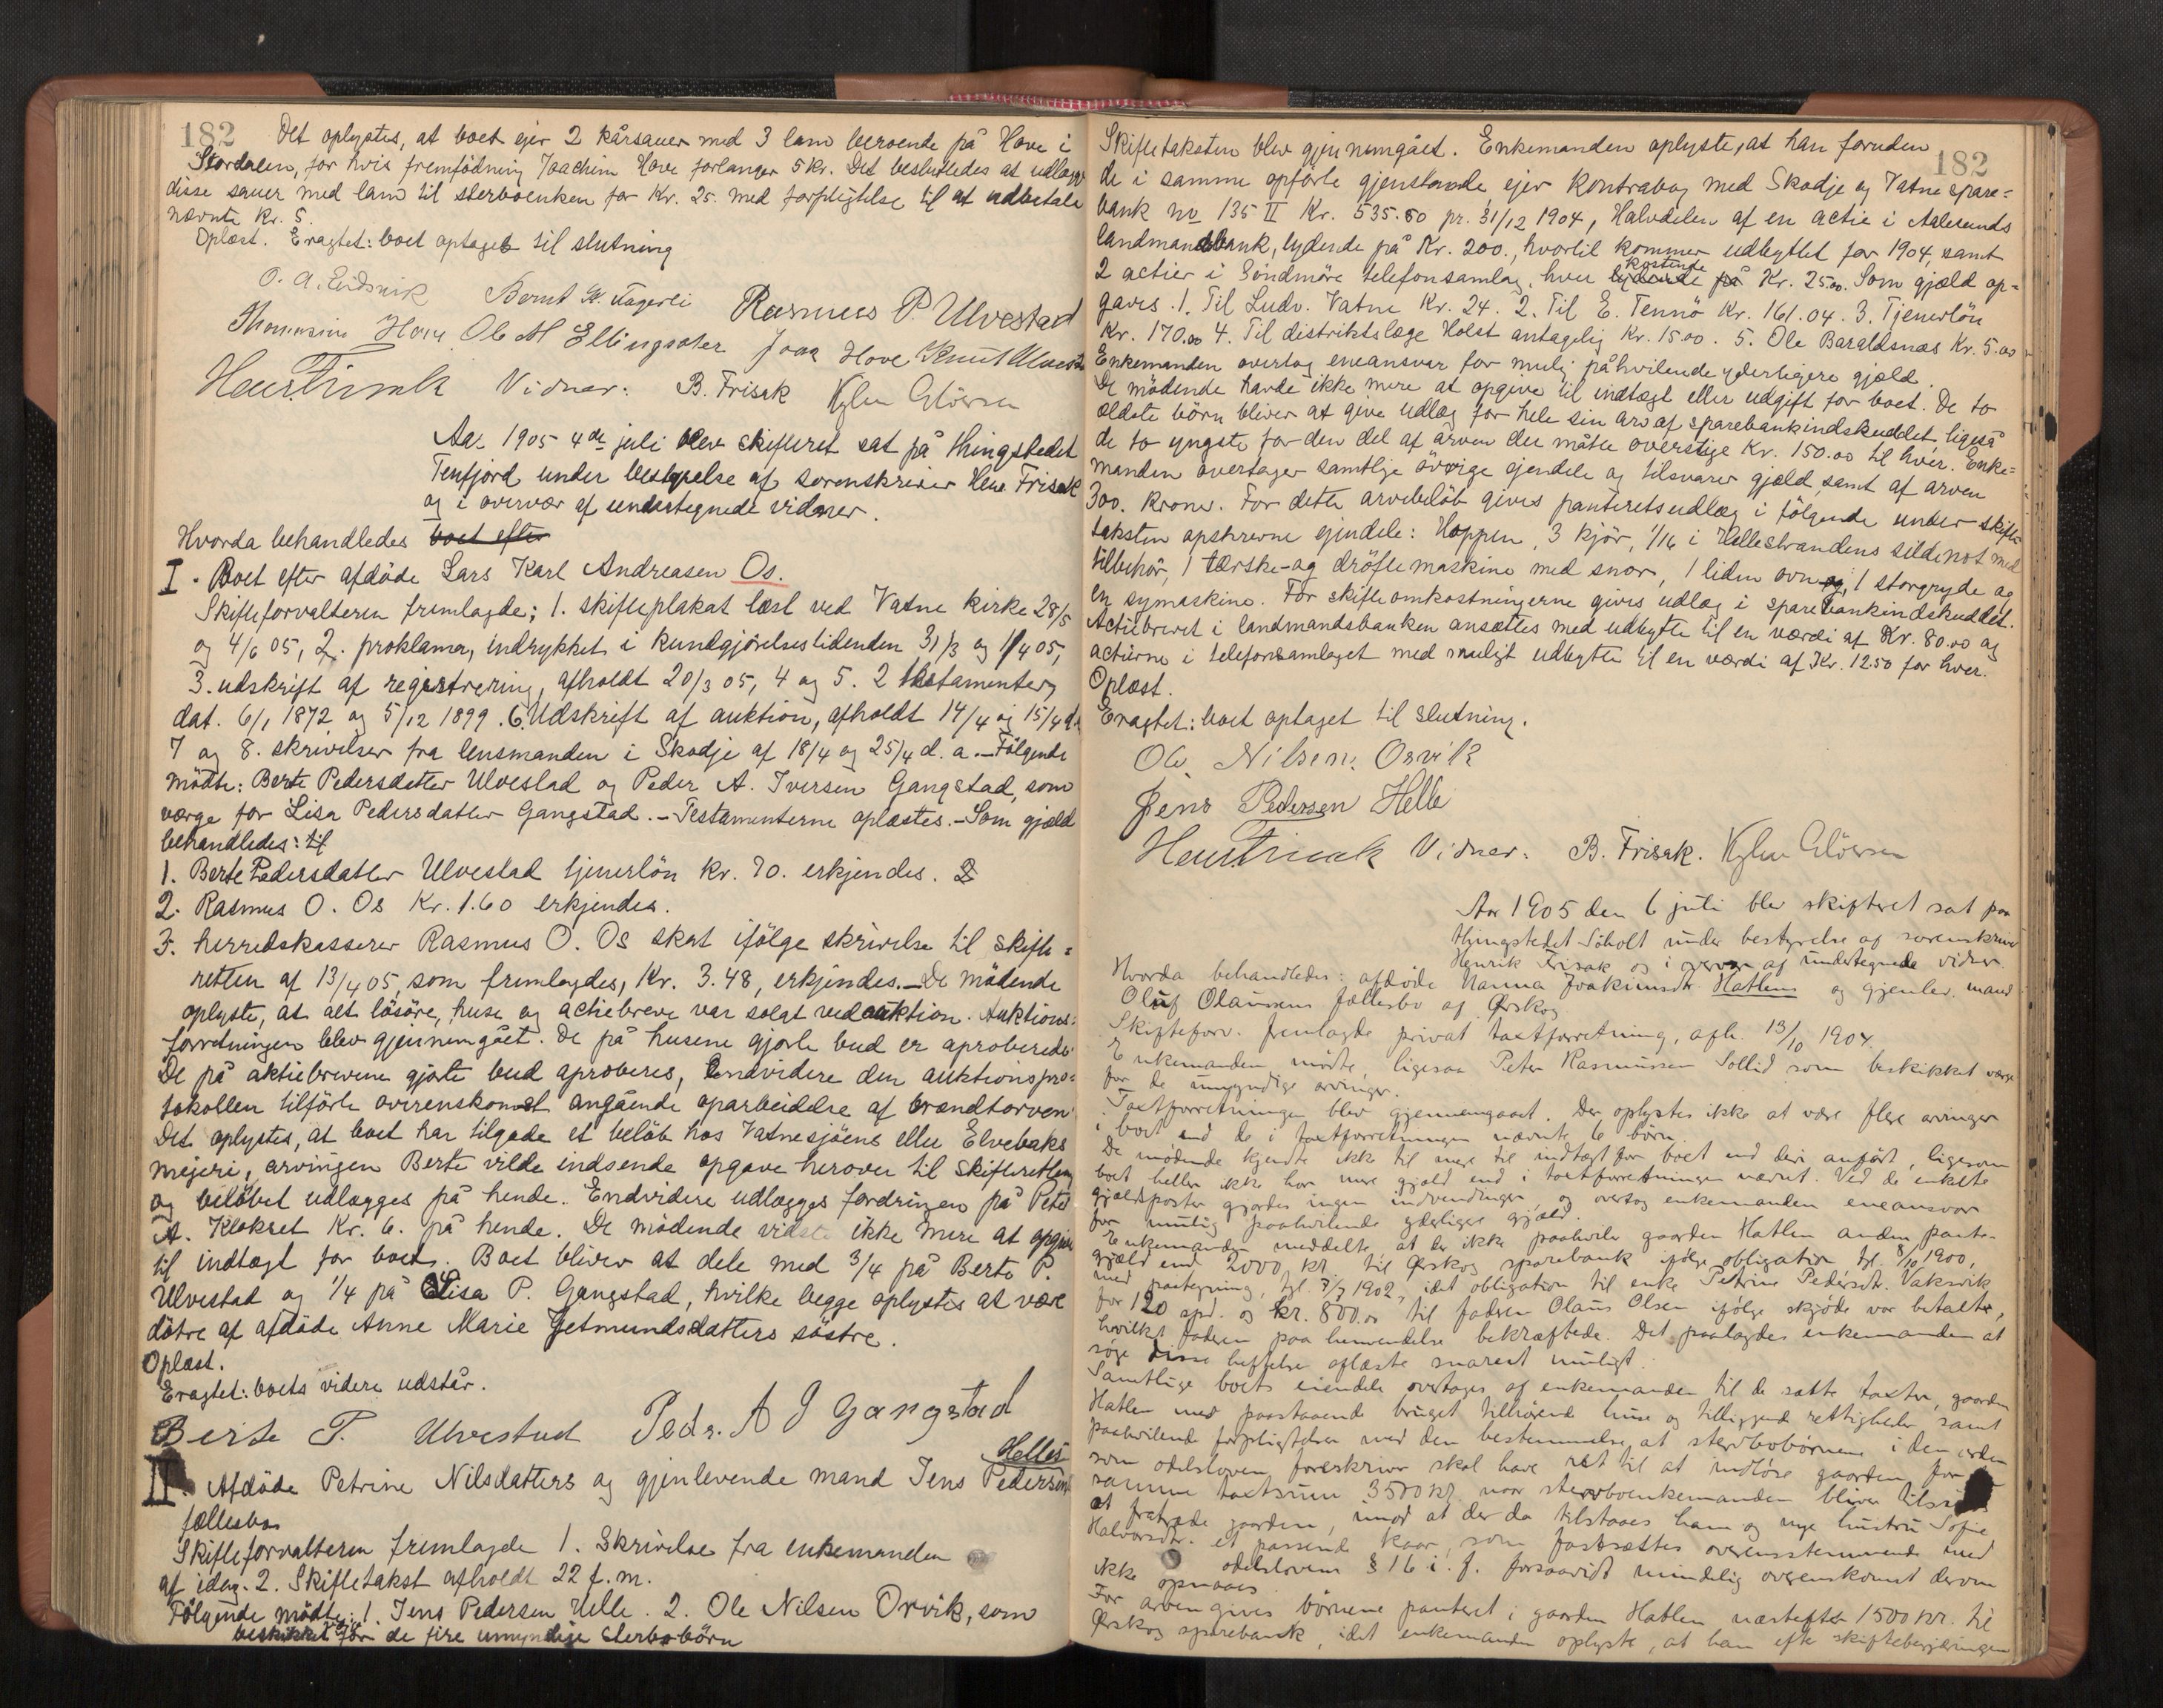 182 Det oplystes, at boet ejer 2 kårsauer med 3 lam beroende på Hove i
Stordalen, for hvis fremfödning Joachim Hove forlanger 5 kr. Det besluttedes at udlægge
disse sauer med lam til sterboenken for Kr. 25. med forpligtelse til at udbetale
nævnte Kr. 5.
Oplæst. Eragtet: boet optaget til slutning
O. A. Eidsvik Bernt K. Fagerli Rasmus P. Ulvestad
Thomasine Hove Ole M Ellingsæter Joak Hove Knut Ulvestad
Henr Frisak Vidner: B. Frisak Kylen Glörsen
Aar 1905 4de juli blev skifteret sat på thingstedet
Tenfjord under bestyrelse af sorenskriver Henr Frisak
og i overvær af undertegnede vidner.
Hvorda behandledes boet efter
I. Boet efter afdöde Lars Karl Andreasen Os.
Skifteforvalteren fremlagde: 1. skifteplakat læst ved Vatne kirke 28/5
og 4/6 05, 2. proklama, indrykket i kundgjörelsestidenden 31/3 og 1/4 05,
3. udskrift af registrering, afholdt 20/3 05, 4 og 5. 2 testamenter,
dat. 6/1 1872 og 5/12 1899. 6. Udskrift af auktion, afholdt 14/4 og 15/4 d.a.
7 og 8. skrivelser fra lensmanden i Skodje af 18/4 og 25/4 d. a. – Følgende
mödte: Berte Pedersdatter Ulvestad og Peder A. Iversen Gangstad, som
værge for Lisa Pedersdatter Gangstad. – Testamenterne oplæstes. – Som gjæld
behandledes: til
1. Berte Pedersdatter Ulvestad tjenerlön kr. 70. erkjendes. 2
2. Rasmus O. Os Kr. 1.60 erkjendes.
3. herredskasserer Rasmus O. Os skat ifölge skrivelse til skifte=
retten af 13/4 05, som fremlagdes, Kr. 3.48, erkjendes. – De mödende
oplyste, at alt lösöre, huse og actiebreve var solgt ved auktion. Auktions=
forretningen blev gjennemgået. De på husene gjorte bud er aproberede.
De på aktiebrevene gjorte bud aproberes, endvidere den auktionspro=
tokollen tilförte overenskomst angående oparbeidelse af brændtorven.
Det oplystes, at boet har tilgode et belöb hos Vatnesjöens eller Elvebaks
mejeri, arvingen Berte vilde indsende opgave herover til skifteretten,
og belöbet udlægges på hende. Endvidere udlægges fordringen på Peter
A. Klokset Kr. 6. på hende. De mödende vidste ikke mere at opgive
til indtægt for boet. Boet bliver at dele med 3/4 på Berte P.
Ulvestad og 1/4 på Lisa P. Gangstad, hvilke begge oplystes at være
dötre af afdöde Anne Marie Getmundsdatters söstre.
Oplæst.
Eragtet: boets videre udstår.
Berte P. Ulvestad Pedr. A I Gangstad
II Afdöde Petrine Nilsdatters og gjenlevende mand Jens Pedersens Helles
fællesbo
Skifteforvalteren fremlagde 1. Skrivelse fra enkemanden
af idag. 2. Skiftetakst afholdt 22 f. m.
Følgende mödte: 1. Jens Pedersen Helle. 2. Ole Nilsen Orvik, som
beskikket værge for de fire umyndige sterbobörn
182
Skiftetaksten blev gjennemgået. Enkemanden oplyste, at han foruden
de i samme opförte gjenstande ejer kontrabog med Skodje og Vatne spare=
bank no 135 II Kr. 535.50 pr. 31/12 1904, Halvdelen af en actie i Aalesunds
landmandsbank, lydende på Kr. 200., hvortil kommer udbyttet for 1904, samt
2 actier i Söndmöre telefonsamlag, hver lydende på kostende Kr. 25.00. Som gjæld op=
gaves. 1. Til Ludv. Vatne Kr. 24. 2. Til E. Tennö Kr. 161.04. 3. Tjenerlön
Kr. 170.00 4. Til distriktslæge Holst antagelig Kr. 15.00. 5. Ole Baraldsnæs Kr. 5.00
Enkemanden overtog eneansvar for mulig påhvilende yderligere gjæld.
De mödende havde ikke mere at opgive til indtægt eller udgift for boet. De to
ældste börn bliver at give udlæg for hele sin arv af sparebankindskuddet, ligeså
de to yngste for den del af arven der måtte overstige Kr. 150.00 til hver. Enke=
manden overtager samtlige övrige ejendele og tilsvarer gjæld samt af arven
300. kroner. For dette arvebelöb gives panteretsudlæg i fölgende under skifte=
taksten opskrevne ejendele: Hoppen, 3 kjör, 1/16 i Hellestrandens sildenot med
tilbehör, 1 tærske- og dröftemaskine med snor, 1 liden ovn og, 1 storgryde og
en symaskine. For skifteomkostningerne gives udlæg i sparebankindskuddet.
Actiebrevet i landmandsbanken ansættes med udbytte til en værdi af Kr. 80.00 og
actierne i telefonsamlaget med muligt udbytte til en værdi af Kr. 12.50 for hver.
Oplæst.
Eragtet: boet optaget til slutning.
Ole Nilsen Orvik
Jens Pedersen Helle
Henr Frisak Vidner: B. Frisak. Kylen Glörsen
Aar 1905 den 6 juli blev skifteret sat paa
thingstedet Söholt under bestyrelse af sorenskriver
Henrik Frisak og i overvær af undertegnede vidner.
Hvorda behandledes: afdøde Nanna Joakimsdtr. Hatlens og gjenlev. mand
Oluf Olausens fællesbo af Ørskog
Skifteforv. fremlagde privat taxtforretning, afh. 13/10 1904.
Enkemanden mødte, ligesaa Peter Rasmussen Sollid som beskikket værge
for de umyndige arvinger.
Taxtforretningen blev gjennemgaaet. Der oplystes ikke at være flere arvinger
i boet end de i taxtforretningen nævnte 6 børn.
De mødende kjendte ikke til mere til indtægt for boet end deri anført, ligesom
boet heller ikke har mere gjæld end i taxtforretningen nævnt. Ved de enkelte
gjældsposter gjordes ingen indvendinger og overtog enkemanden eneansvar
for mulig paahvilende yderligere gjæld.
Enkemanden meddelte, at der ikke paahviler gaarden Hatlen anden pante-
gjæld end 2000 kr. til Ørskog sparebank ifølge obligation tgl. 8/10 1900,
med paategning, tgl. 7/7 1902, idet obligation til enke Petrine Pedersdtr. Vaksvik
for 120 spd. og kr. 800.00 til faderen Olaus Olsen ifølge skjøde var betalte,
hvilket faderen paa henvendelse bekræftede. Det paalagdes enkemanden at
søge disse heftelser aflæste snarest muligt.
Samtlige boets eiendele overtages af enkemanden til de satte taxter, gaarden
Hatlen med paastaaende bruget tilhørende huse og tilliggende rettigheder samt
paahvilende forpligtelser med den bestemmelse, at sterbobørnene i den orden
som odelsloven foreskriver skal have ret til at indløse gaarden for
samme taxtsum 3500 kr. naar sterboenkemanden bliver
at fratræde gaarden, imod at der da tilstaaes ham og nye hustru Sofie
Halvorsdtr. et passende kaar, som fastsættes overensstemmende med
odelslovens § 16 i. f. forsaavidt mindelig overenskomst derom
ikke opnaaes.
For arven gives børnene panteret i gaarden Hatlen næstefter 1500 kr. til
Ørskog sparebank, idet enkemanden oplyste, at han efter skiftebegjæringen